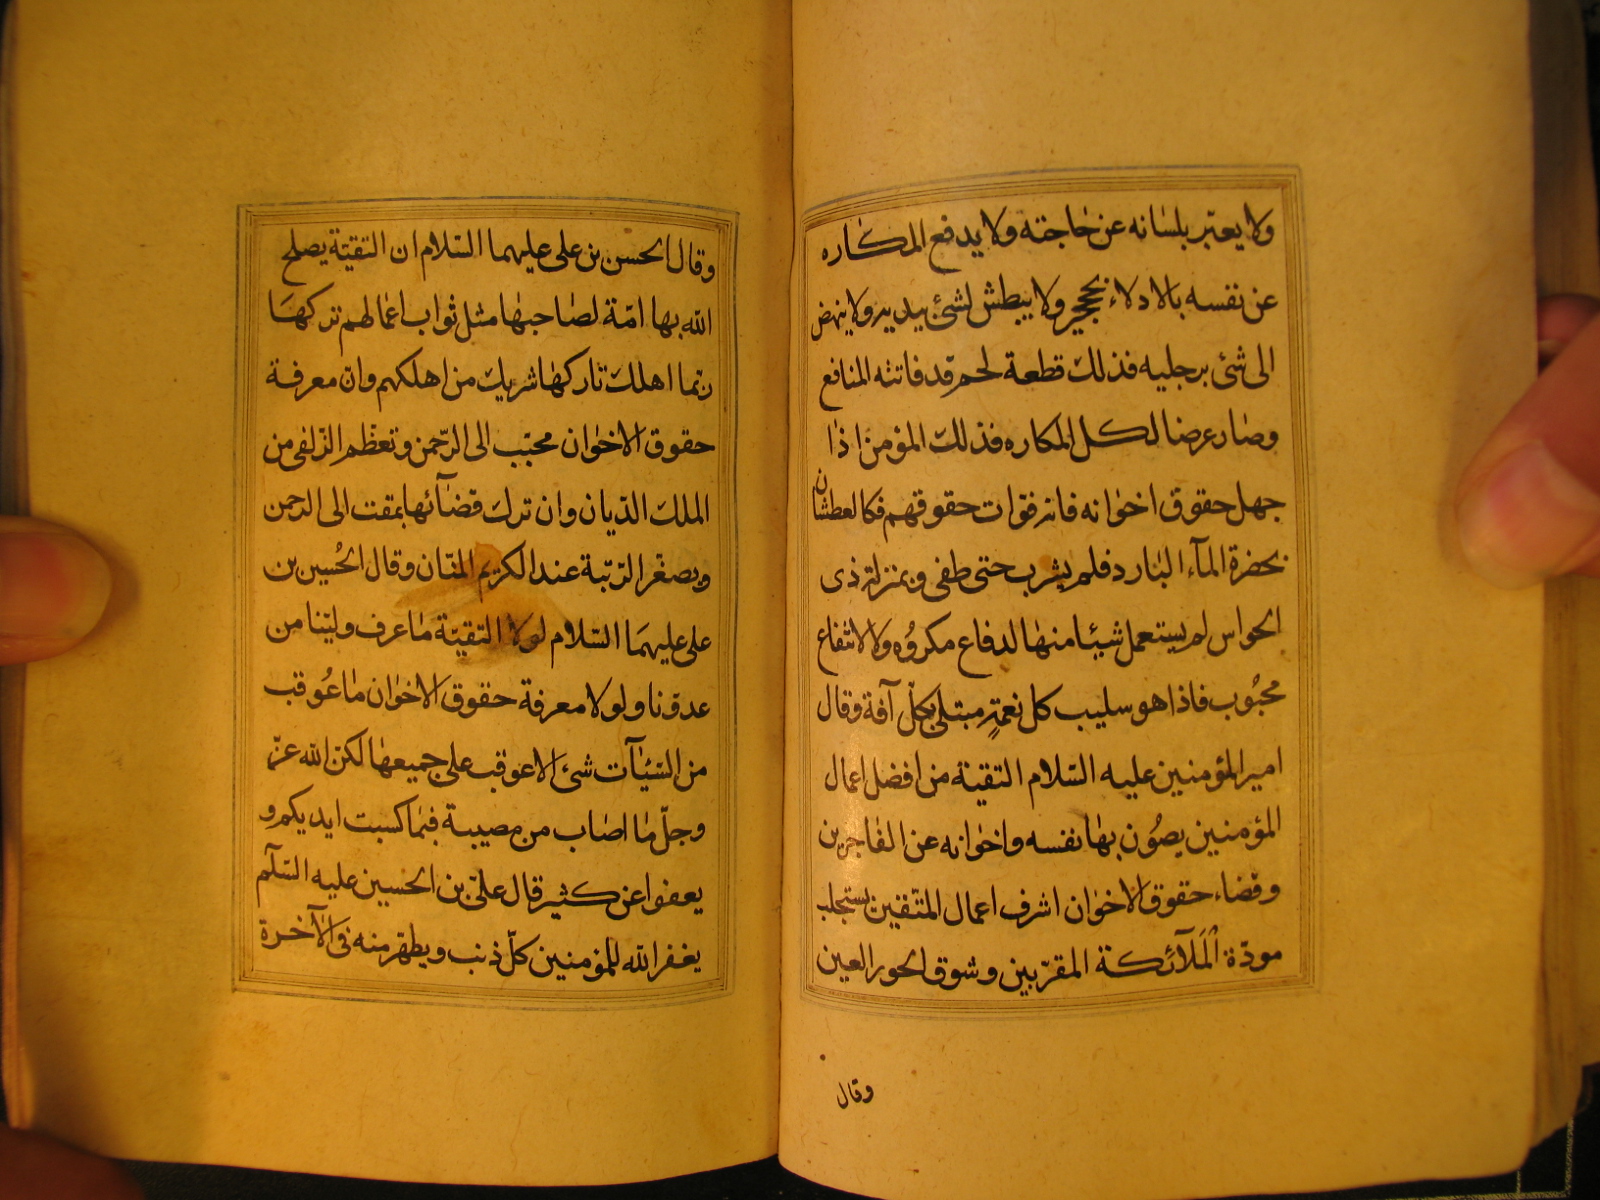 ولا يعبّر بلسانه عن حاجته ولا يدفع المكاره
عن نفسه بالادلاء بحججه ولا يبطش لشئ بيديه ولا ينهض
الى شئ برجليه فذلك قطعة لحم قد فاتته المنافع
وصار عرضا لكل المكاره فذلك المؤمن اذا
جهل حقوق اخوانه فانه فوّات حقوقهم فكالعطشان
بحضرة المآء البارد فلم يشرب حتى طفى وبمنزلة ذى
الحواس لم يستعمل شيئا منها لدفاع مكروه ولا لانتفاع
محبوب فاذا هو سليب كل نعمةٍ مبتلى بكلّ آفة وقال
امير المؤمنين عليه السّلام التقيّة من افضل اعمال
المؤمنين يصُون بها نفسه واخوانه عن الفاجرين
وقضاء حقوق الاخوان اشرف اعمال المتّقين يستجلب
مودّة الْمَلآئكة المقرّبين وشوق الحور العين
وقال
وقال الحسن بن على عليهما السّلام ان التقيّة يصلح
الله بها امّة لصاحبها مثل ثواب اعمالهم تركها
ربّما اهلك تاركها شريك من اهلكهم وان معرفة
حقوق الاخوان محبّب الى الرّحمن وتعظّم الزّلفى من
الملك الدّيان وان ترك قضآئها بمقت الى الرحمن
ويصغّر الرّتبة عند الكريم المنّان وقال الحُسين بن
على عليهمَا السّلام لولا التقيّة ما عرف وليّنا من
عدوّنا ولولا معرفة حقوق الاخوان ما عُوقب
من السّيّآت شئ الا عوقب على جميعها لكن الله عزّ
وجلّ ما اصاب من مصيبة فبما كسبت ايديكم و
يعفوا عن كثير قال علىّ بن الحسين عليه السّلم
يغفر الله للمؤمنين كلّ ذنب ويطهّر منه فى الآخرة